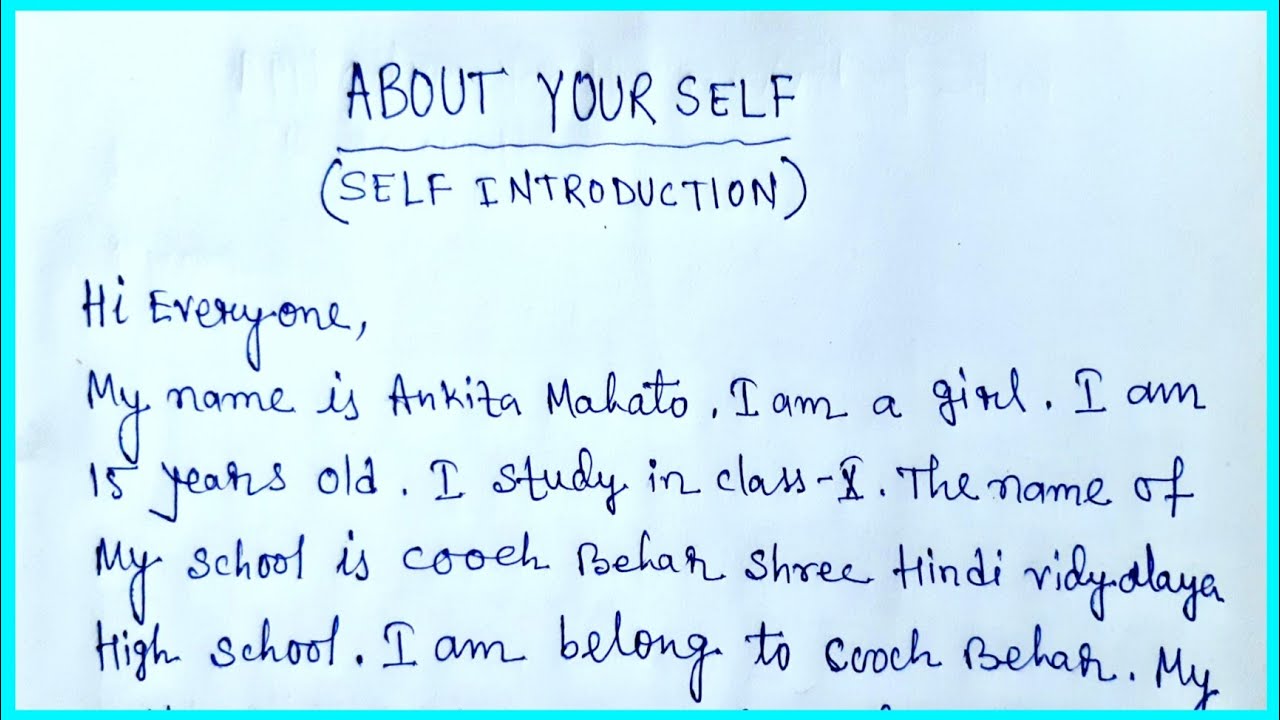 ABOUT YOUR SELF
(SELF INTRODUCTION)
Hi Everyone,
My name is Ankita Mahato. I am a girl. I am
15 years old. I study in class-X. The name of
My school is cooch Behar Shree Hindi vidyalaya
High school. I am belong to cooch Behar. My